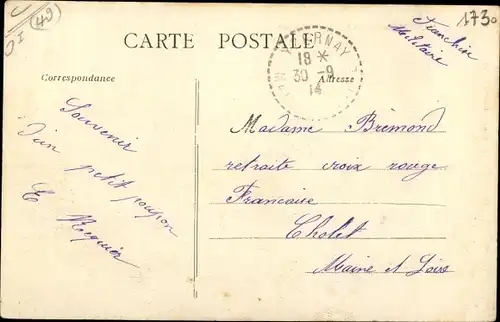 (49)
1730
CARTE POSTALE
Franchise
Militaire
Correspondance
Adresse
18 *
30 - 9
14
Souvenir
d'un petit poupon
E
Madame Brémond
retraite croix rouge
Francaise
Cholet
Maine et Loire